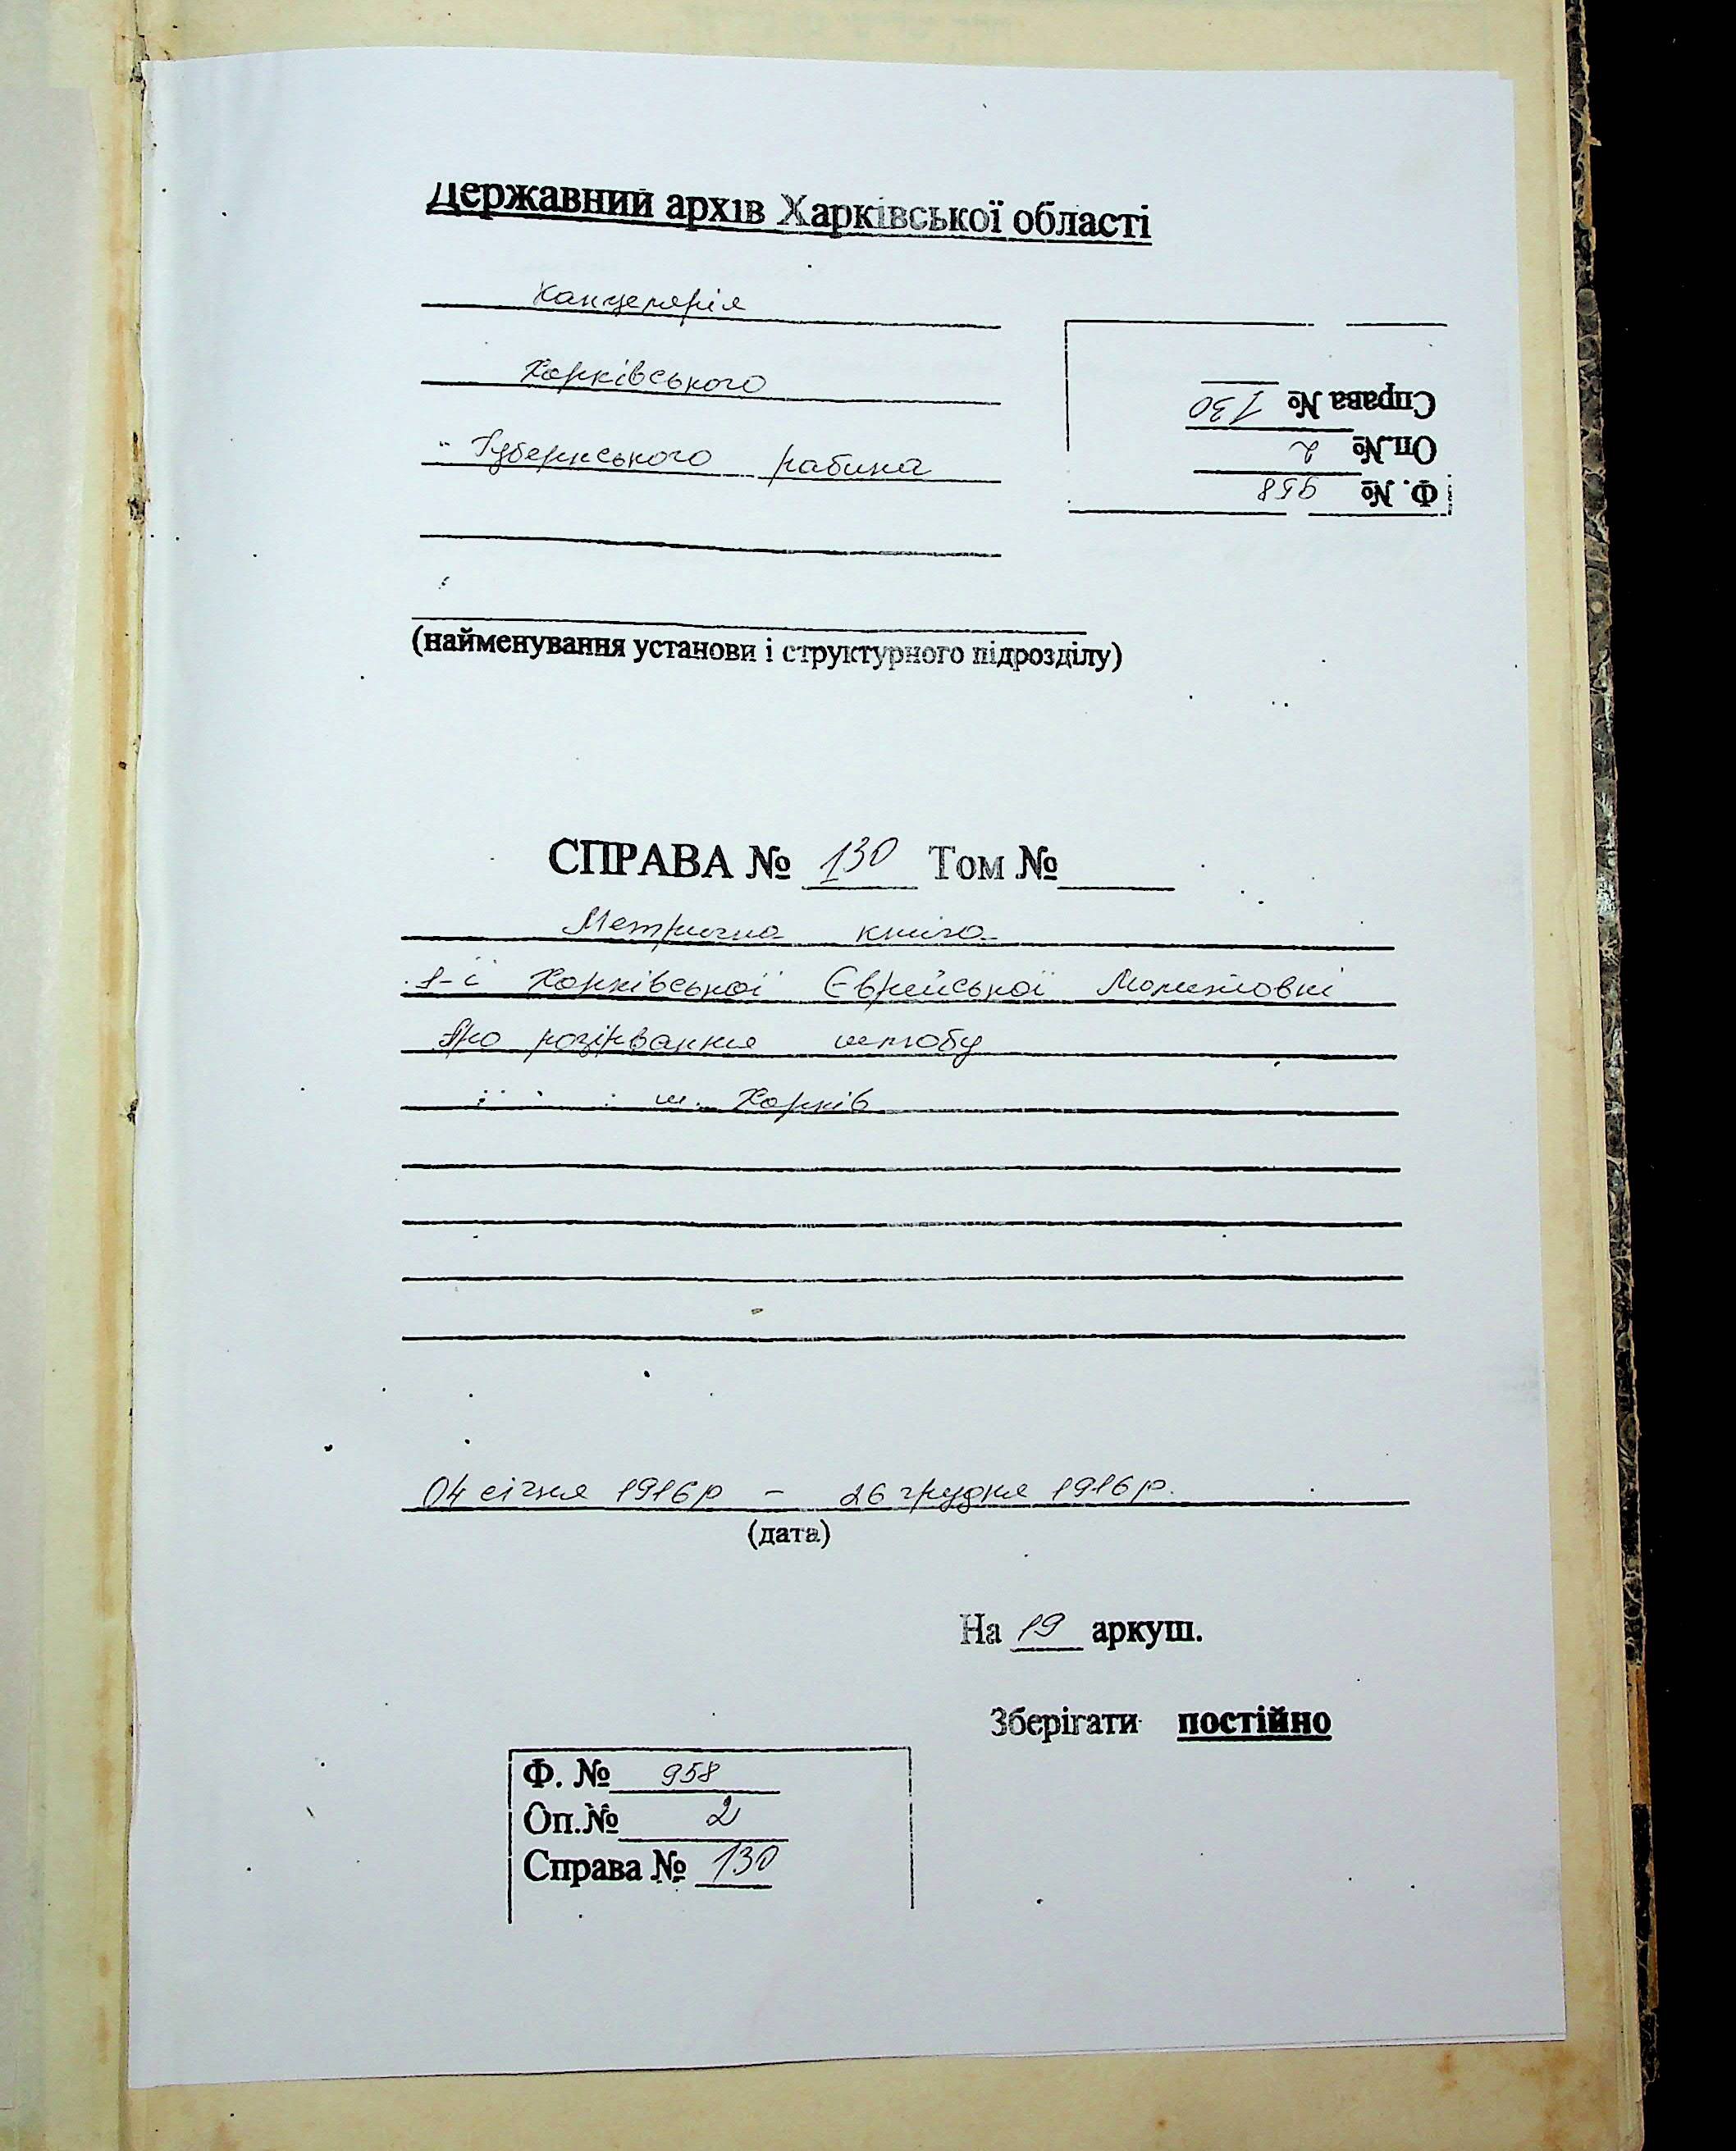 Державний архів Харківської області
Канцелярія
Харківського
Губернського рабина
Справа № 130
Оп.№ 2
Ф. № 958
(найменування установи і структурного підрозділу)
СПРАВА № 130 Том №
Метрична книга
1-ї Харківської Єврейської Молитовні
Про розірвання шлюбу
м. Харків
04 січня 1916р – 26 грудня 1916р.
(дата)
На 19 аркуш.
Зберігати постійно
Ф. № 958
Оп.№ 2
Справа № 130